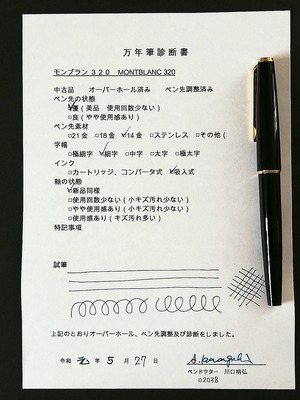 万年筆診断書
モンブラン３２０ MONTBLANC 320
中古品 オーバーホール済み ペン先調整済み
ペン先の状態
□優(美品 使用回数少ない)
□良(やや使用感あり)
ペン先素材
□21金 □18金 □14金 □ステンレス □その他(
字幅
□極細字 □細字 □中字 □太字 □極太字
インク
□カートリッジ、コンバータ式 □吸入式
軸の状態
□新品同様
□使用回数少ない(小キズ汚れ少ない)
□やや使用感あり(小キズ汚れ少し)
□使用感あり(キズ汚れ多い)
特記事項
試筆
上記のとおりオーバーホール、ペン先調整及び診断をしました。
令和 元 年 5 月 27 日
ペンドクター 川口明弘
02038